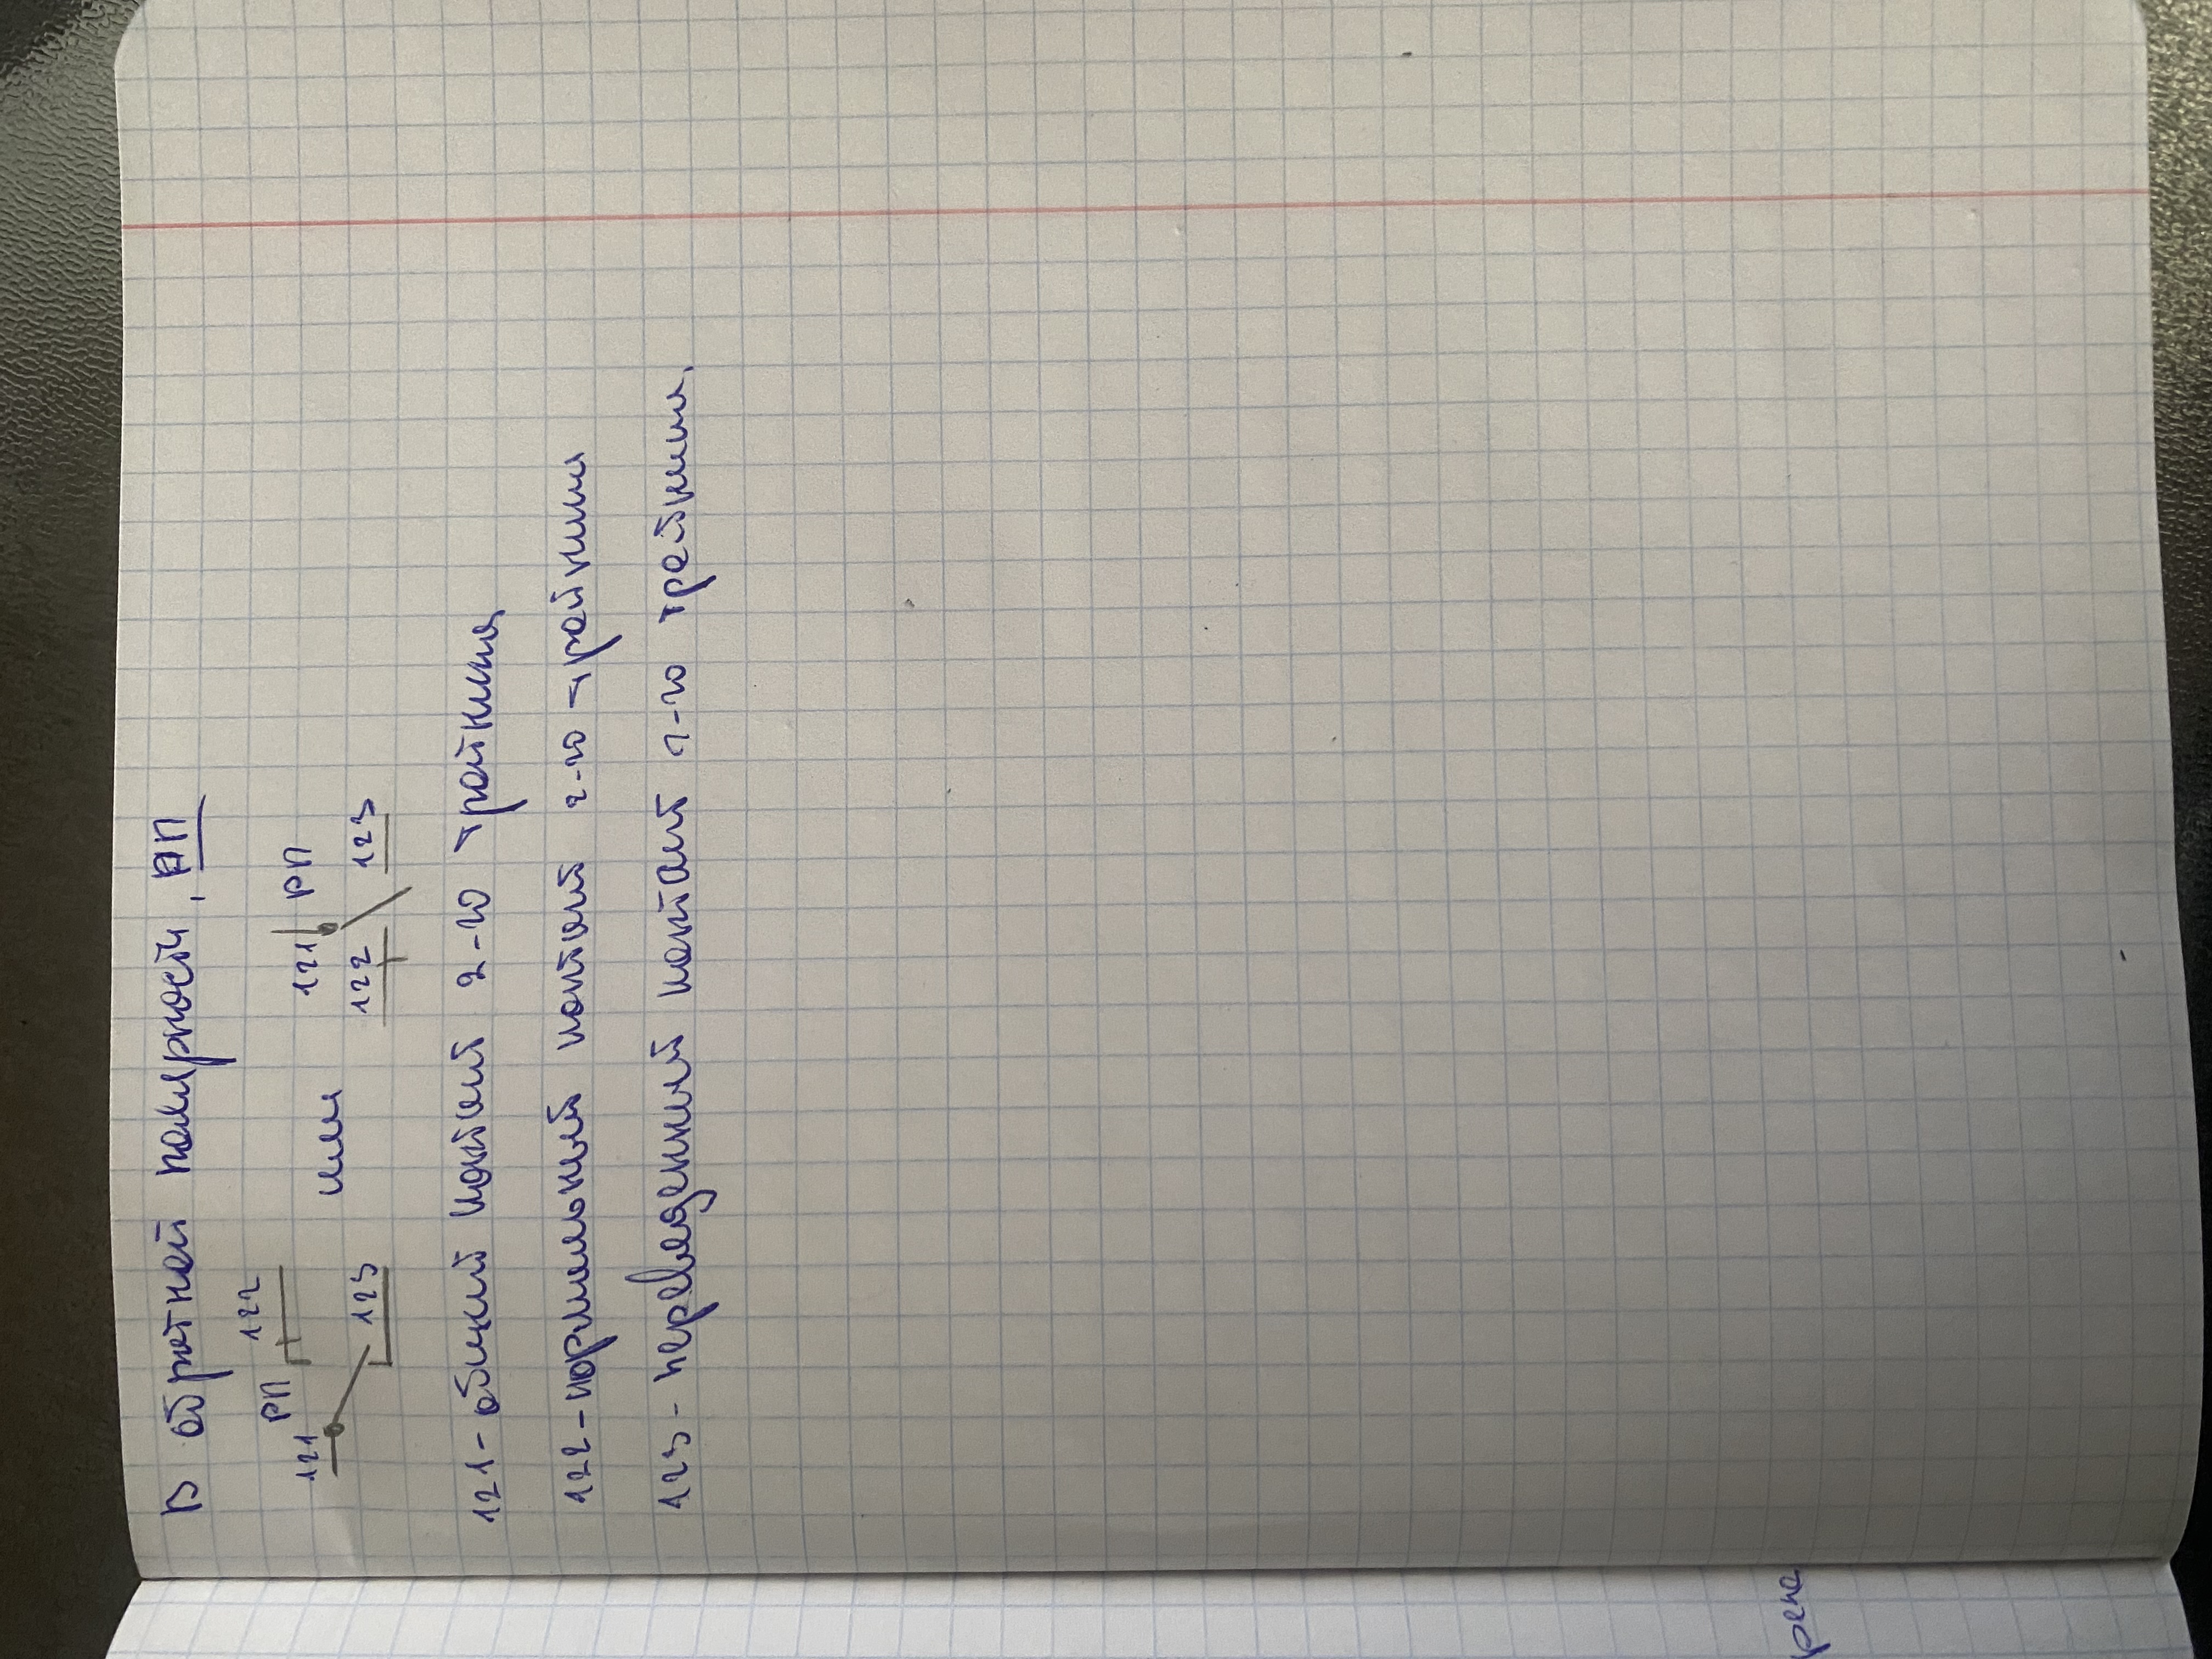 В обратной полярности, РП
121 РП 122 123 или 121 РП 122 123
121 - общий контакт 2-го тройника
122 - нормальный контакт 2-го тройника
123 - переведенный контакт 2-го тройника.
рена